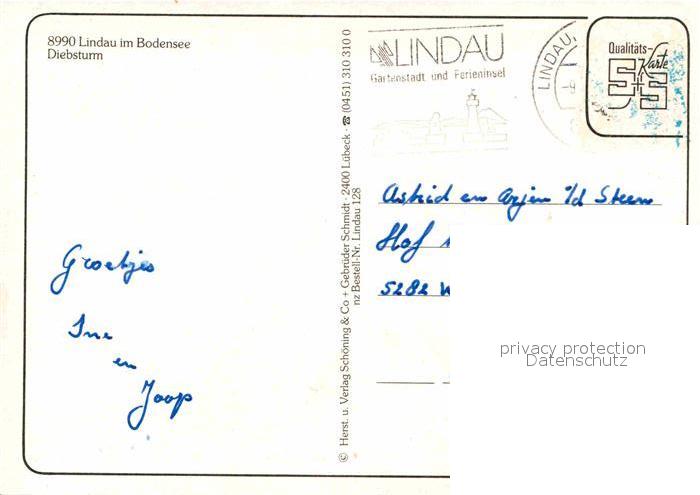 8990 Lindau im Bodensee
Diebsturm
Groetjes
Ine
en
Joop
© Herst. u. Verlag Schöning & Co + Gebrüder Schmidt · 2400 Lübeck · ☎ (0451) 310 310 0
nz Bestell-Nr. Lindau 128
LINDAU
Gartenstadt und Ferieninsel
LINDAU,
-9
Qualitäts-
Karte
S+S
Astrid en Arjen v/d Steen
Hof
5282
privacy protection
Datenschutz